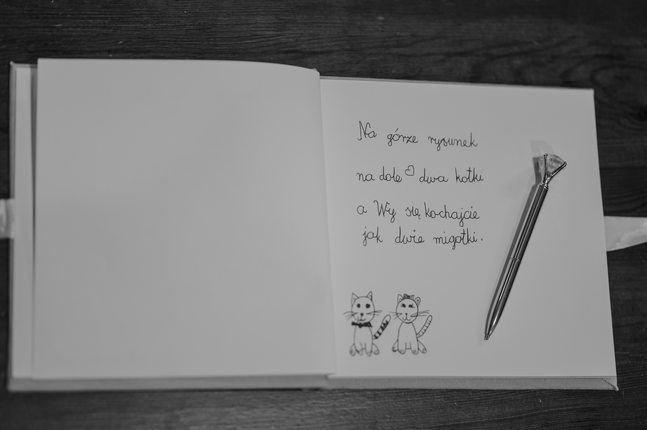 Na górze rysunek
na dole ♡ dwa kotki
a Wy się kochajcie
jak dwie migotki.